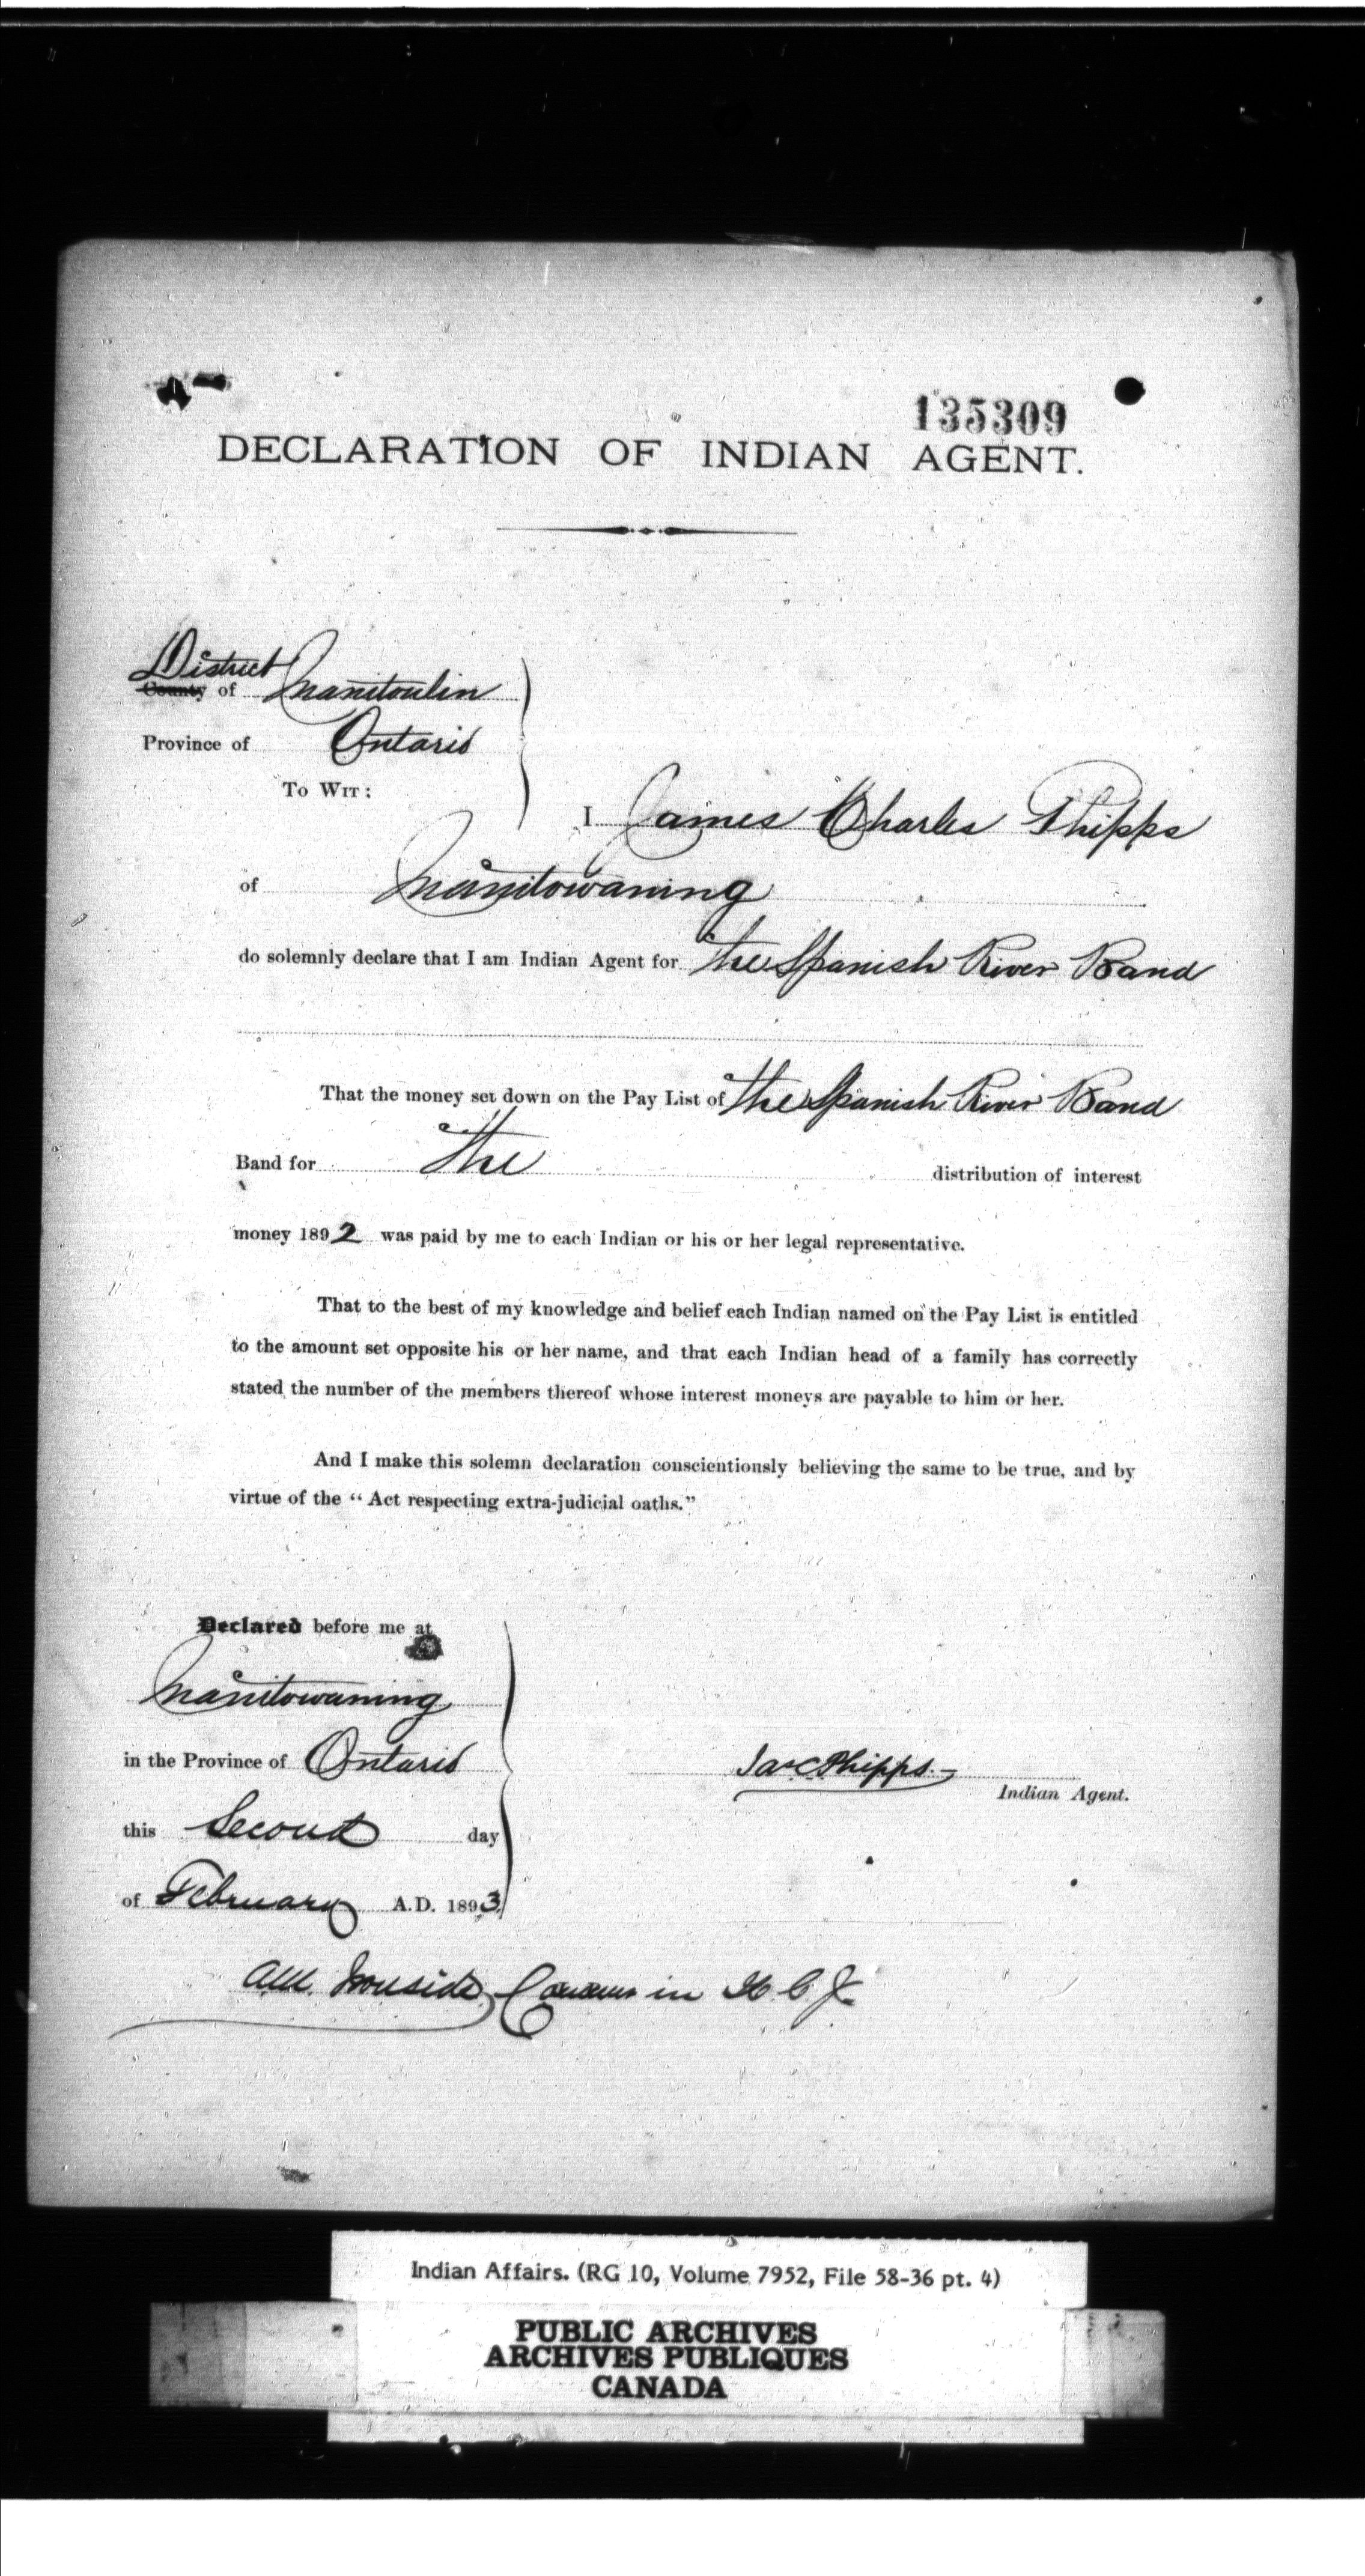 135309
DECLARATION OF INDIAN AGENT.
District
County of Manitoulin
Province of Ontario
To Wit:
I James Charles Phipps
of Manitowaning
do solemnly declare that I am Indian Agent for the Spanish River Band
That the money set down on the Pay List of the Spanish River Band
Band for the distribution of interest
money 1892 was paid by me to each Indian or his or her legal representative.
That to the best of my knowledge and belief each Indian named on the Pay List is entitled
to the amount set opposite his or her name, and that each Indian head of a family has correctly
stated the number of the members thereof whose interest moneys are payable to him or her.
And I make this solemn declaration conscientiously believing the same to be true, and by
virtue of the “Act respecting extra-judicial oaths.”
Declared before me at
Manitowaning
in the Province of Ontario
Jas C Phipps.-
Indian Agent.
this Second day
of February A.D. 1893
Ironside in H.C.J.
Indian Affairs. (RG 10, Volume 7952, File 58-36 pt. 4)
PUBLIC ARCHIVES
ARCHIVES PUBLIQUES
CANADA